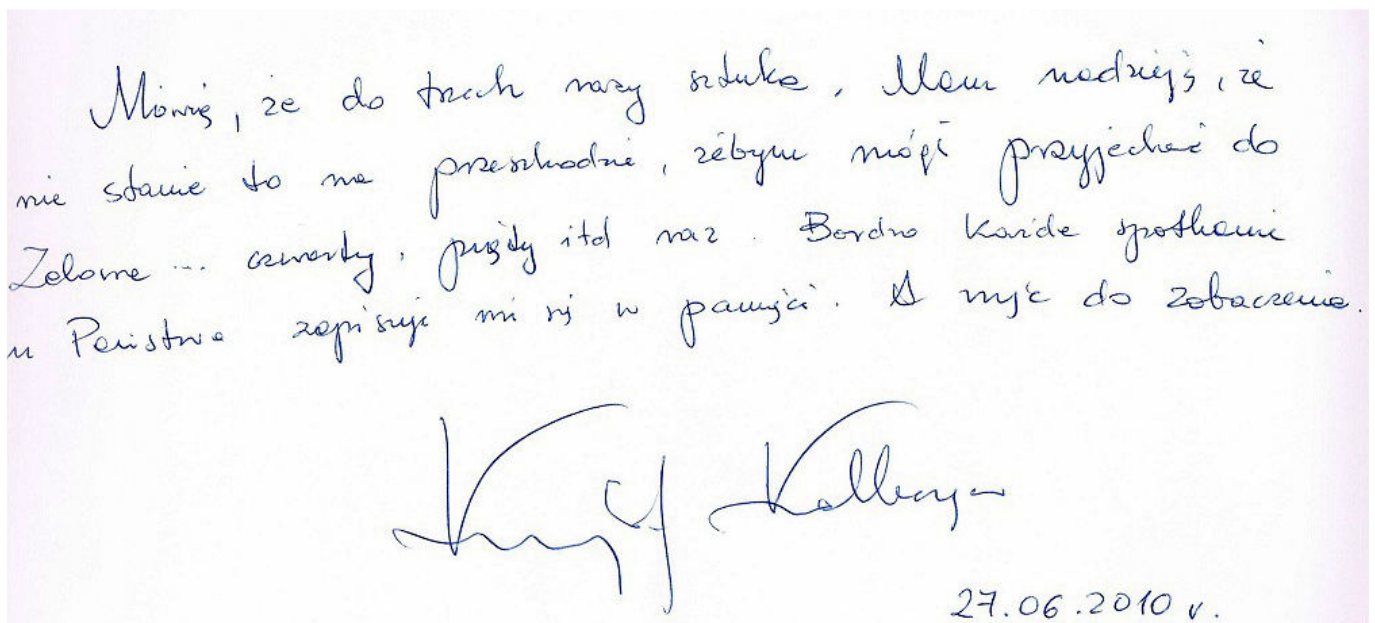 Mówią, że do trzech razy sztuka. Mam nadzieję, że
nie stanie to na przeszkodzie, żebym mógł przyjechać do
Zelowa ... czwarty, piąty itd raz. Bardzo każde spotkanie
u Państwa zapisuje mi się w pamięci. A więc do zobaczenia.
Krzysztof Kolberger
27.06.2010 r.